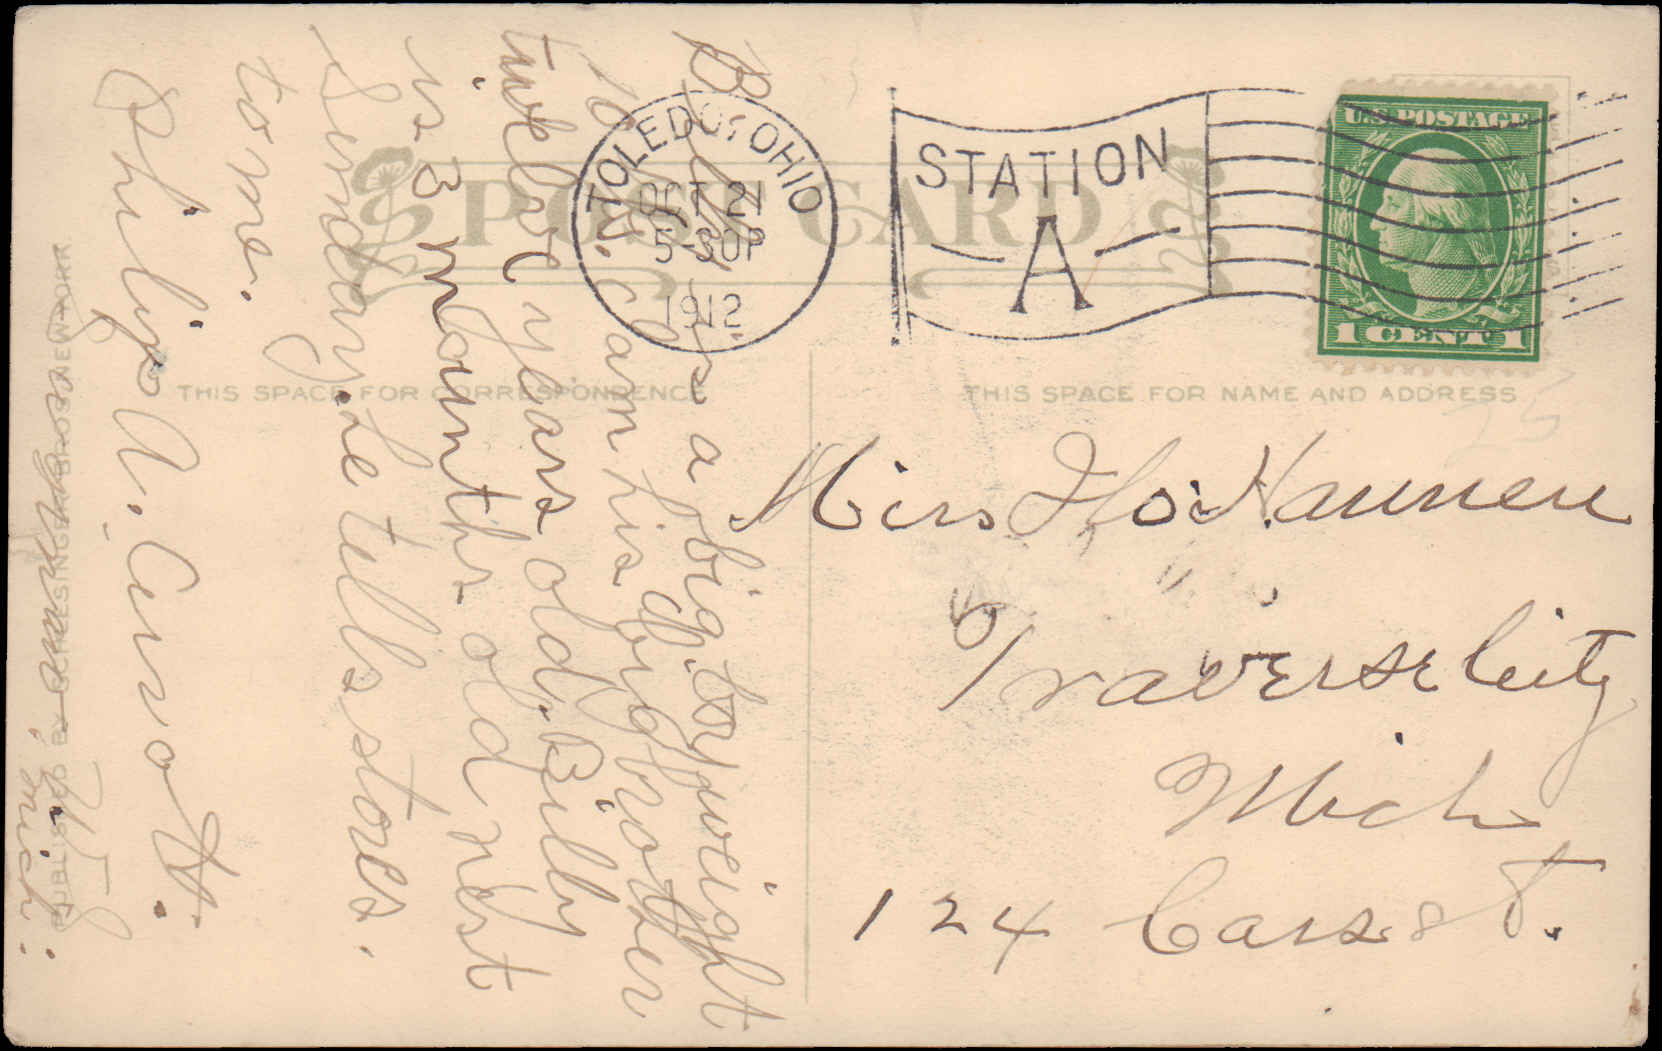 POST CARD
THIS SPACE FOR CORRESPONDENCE
THIS SPACE FOR NAME AND ADDRESS
TOLEDO, OHIO
OCT 21
5-30P
1912
STATION
A
U.S. POSTAGE
1 CENT 1
Miss Flo Hannen
Traverse City
Mich
124 Cass St.
Billy is a big boy, weight
70 lb. I am his big brother
twelve years old, Billy
is 3 months old, next
Sunday. he tells stores.
to me.
Philip A.
Mich.
PUBLISHED BY NEW YORK